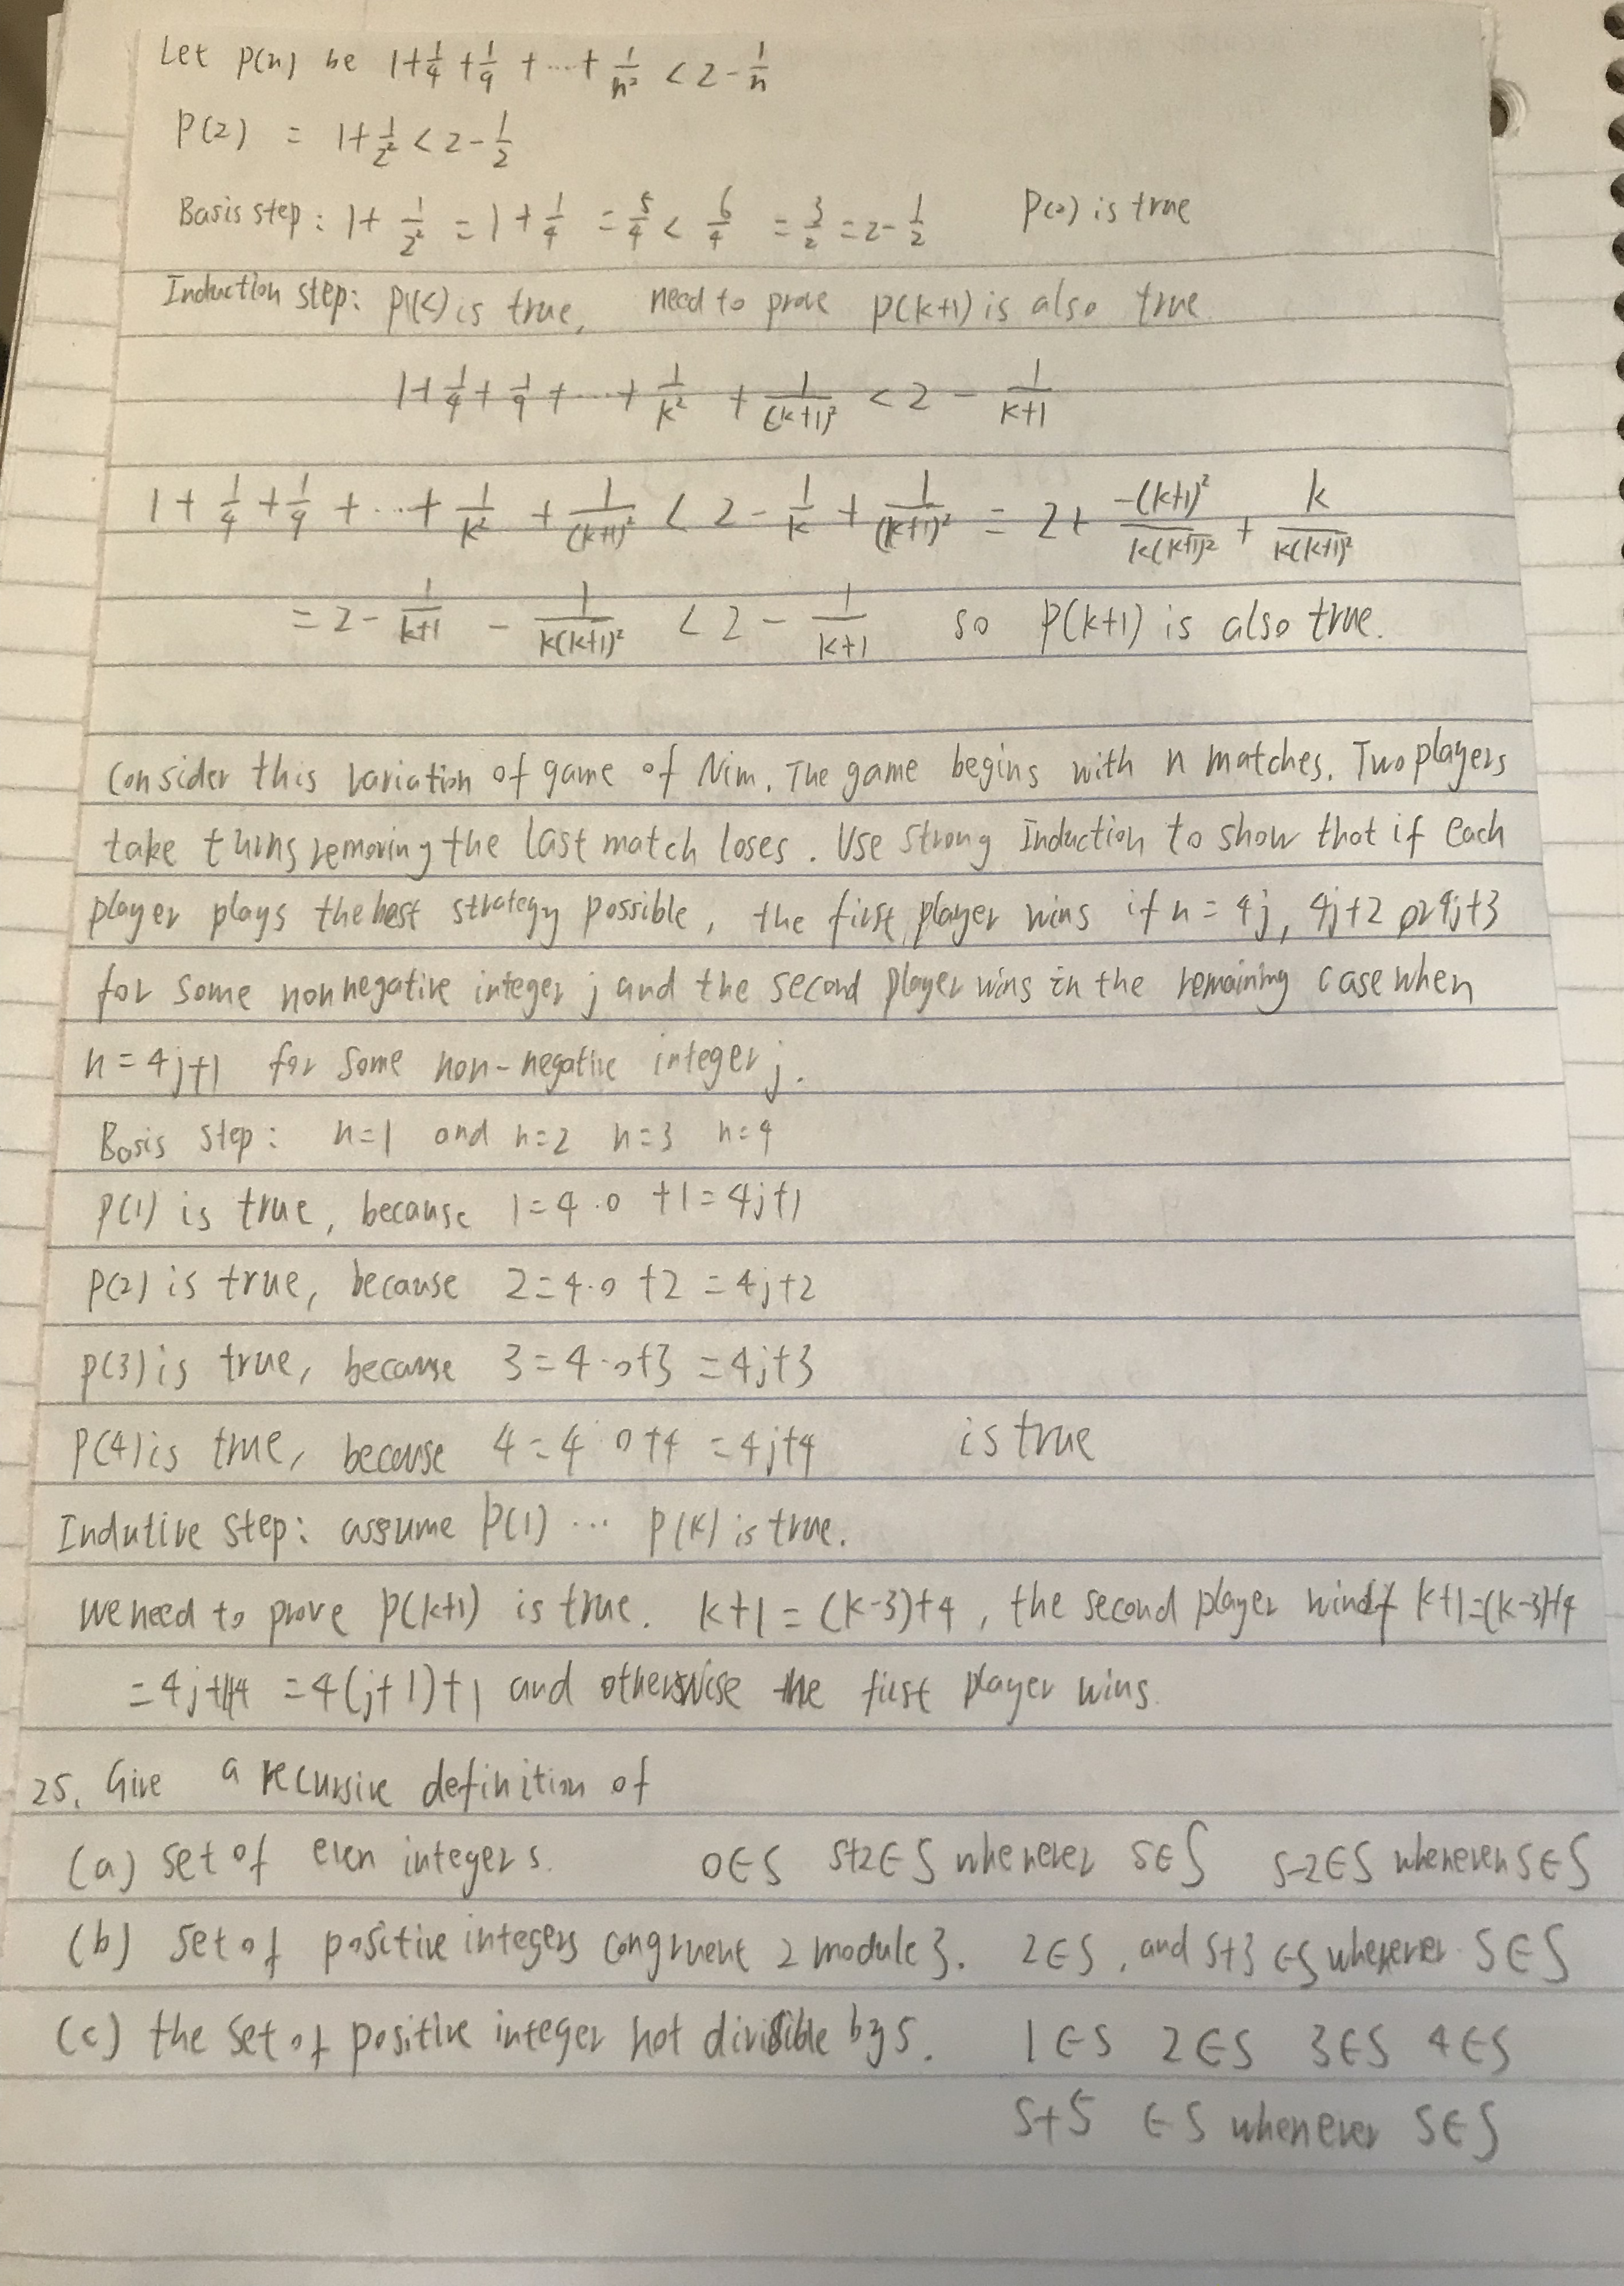 Let P(n) be 1+1/4+1/9+...+1/n² < 2-1/n
P(2) = 1+1/2² < 2-1/2
Basis step: 1+1/2² = 1+1/4 = 5/4 < 6/4 = 3/2 = 2-1/2 P(2) is true
Induction step: P(k) is true, need to prove P(k+1) is also true
1+1/4+1/9+...+1/k²+1/(k+1)² < 2 - 1/(k+1)
1+1/4+1/9+...+1/k²+1/(k+1)² < 2 - 1/k + 1/(k+1)² = 2+ -(k+1)²/k(k+1)² + k/k(k+1)²
= 2 - 1/(k+1) - 1/k(k+1)² < 2 - 1/(k+1) so P(k+1) is also true.
Consider this variation of game of Nim. The game begins with n matches. Two players
take turns removing the last match loses. Use strong Induction to show that if each
player plays the best strategy possible, the first player wins if n = 4j, 4j+2 or 4j+3
for some nonnegative integer j and the second player wins in the remaining case when
n = 4j+1 for some non-negative integer j.
Basis step: n=1 and n=2 n=3 n=4
P(1) is true, because 1=4·0+1=4j+1
P(2) is true, because 2=4·0+2=4j+2
P(3) is true, because 3=4·0+3=4j+3
P(4) is true, because 4=4·0+4=4j+4 is true
Indutive step: assume P(1) ... P(k) is true.
We need to prove P(k+1) is true. k+1=(k-3)+4, the second player if k+1=(k-3)+4
= = 4(j+1)+1 and otherswise the first player wins.
25. Give a recursive definition of
(a) set of even integers. 0∈S S+2∈S whenever S∈S S-2∈S whenever S∈S
(b) set of positive integers congruent 2 module 3. 2∈S, and S+3∈S whenever S∈S
(c) the set of positive integer not divisible by 5. 1∈S 2∈S 3∈S 4∈S
S+5 ∈S whenever S∈S